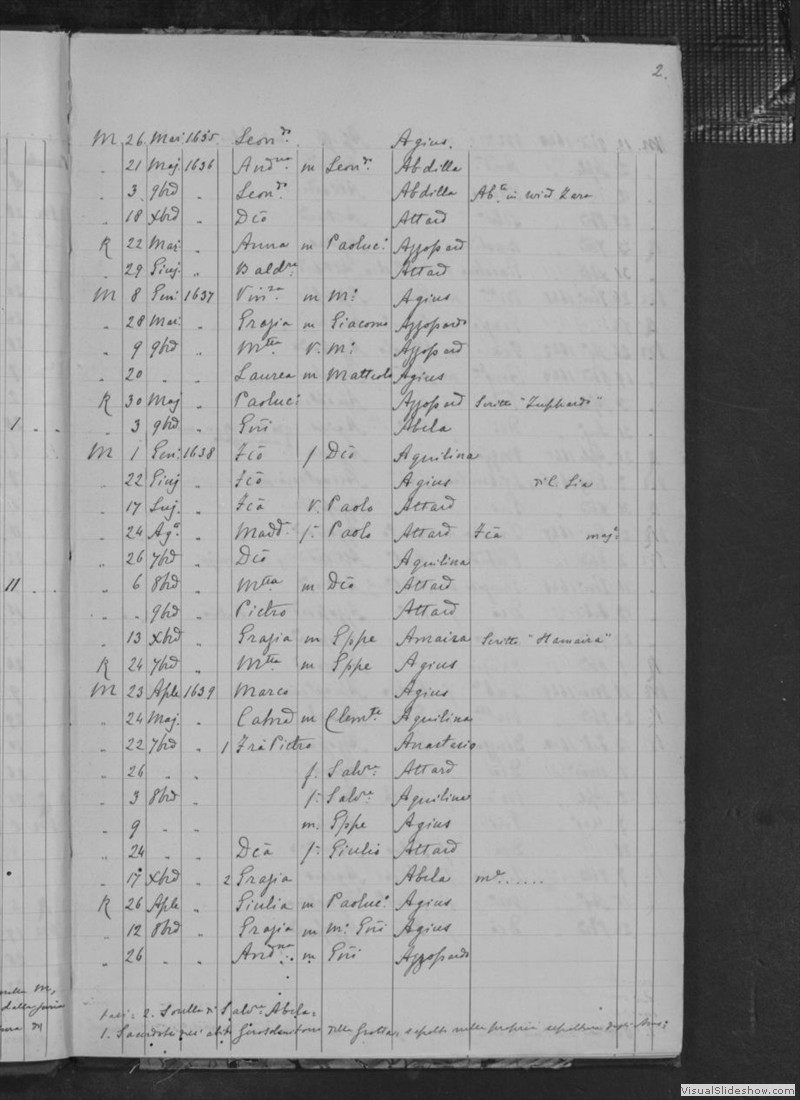 2.
M 26 Mai 1635 Leon.do Agius.
" 21 Maj 1636 And.na m Leon.do Abdilla
" 3 9brd " Leon.do Abdilla Ab.e in wied Zara
" 18 Xbrd " Dcō Attard
R 22 Mai " Anna m Paoluc.i Azzopard
" 29 Giuj " Bald.re Attard
M 8 Gen: 1637 m M.i Agius
" 28 Mai " Grazia m Giacomo Azzopardo
" 9 9brd " M.tea V. M.i Azzopard
" 20 " " Laurea m Matteolo Agius
R 30 Maj " Paoluci Azzopard Scritto "Zuphardo"
1 " 3 9brd " Gñi Abela
M 1 Gen: 1638 Fcō f Dcō Aquilina
" 22 Giuj " Fcō Agius di C. Lia
" 17 Luj " Fcā V. Paolo Attard
" 24 Ag.o " Madd.a f. Paolo Attard Fcā maj.e
" 26 7brd " Dcō Aquilina
11 " 6 8brd " M.tea m Dcō Attard
" " 9brd " Pietro Attard
" 13 Xbrd " Grazia m Gppe Amaira Scritto "Hamaira"
R 24 7brd " M.tea m Gppe Agius
M 23 Aple 1639 Marco Agius
" 24 Maj " Catred m Clem.te Aquilina
" 22 7brd " 1 Frà Pietro Anastasio
" 26 " " f. Salv.re Attard
" 3 8brd " f. Salv.re Aquilina
" 9 " " m. Gppe Agius
" 24 " " Dcā f. Giulio Attard
" 17 Xbrd " 2 Grazia Abela m.e ......
R 26 Aple " Giulia m Paoluc.i Agius
" 12 8brd " Grazia m M.i Gñi Agius
" 26 " " And.na m Gñi Azzopardo
2. Sorella di Salv.re Abela.
1. Sacerdote Gerosolimitano della Grotta, sepolto nella propria sepoltura